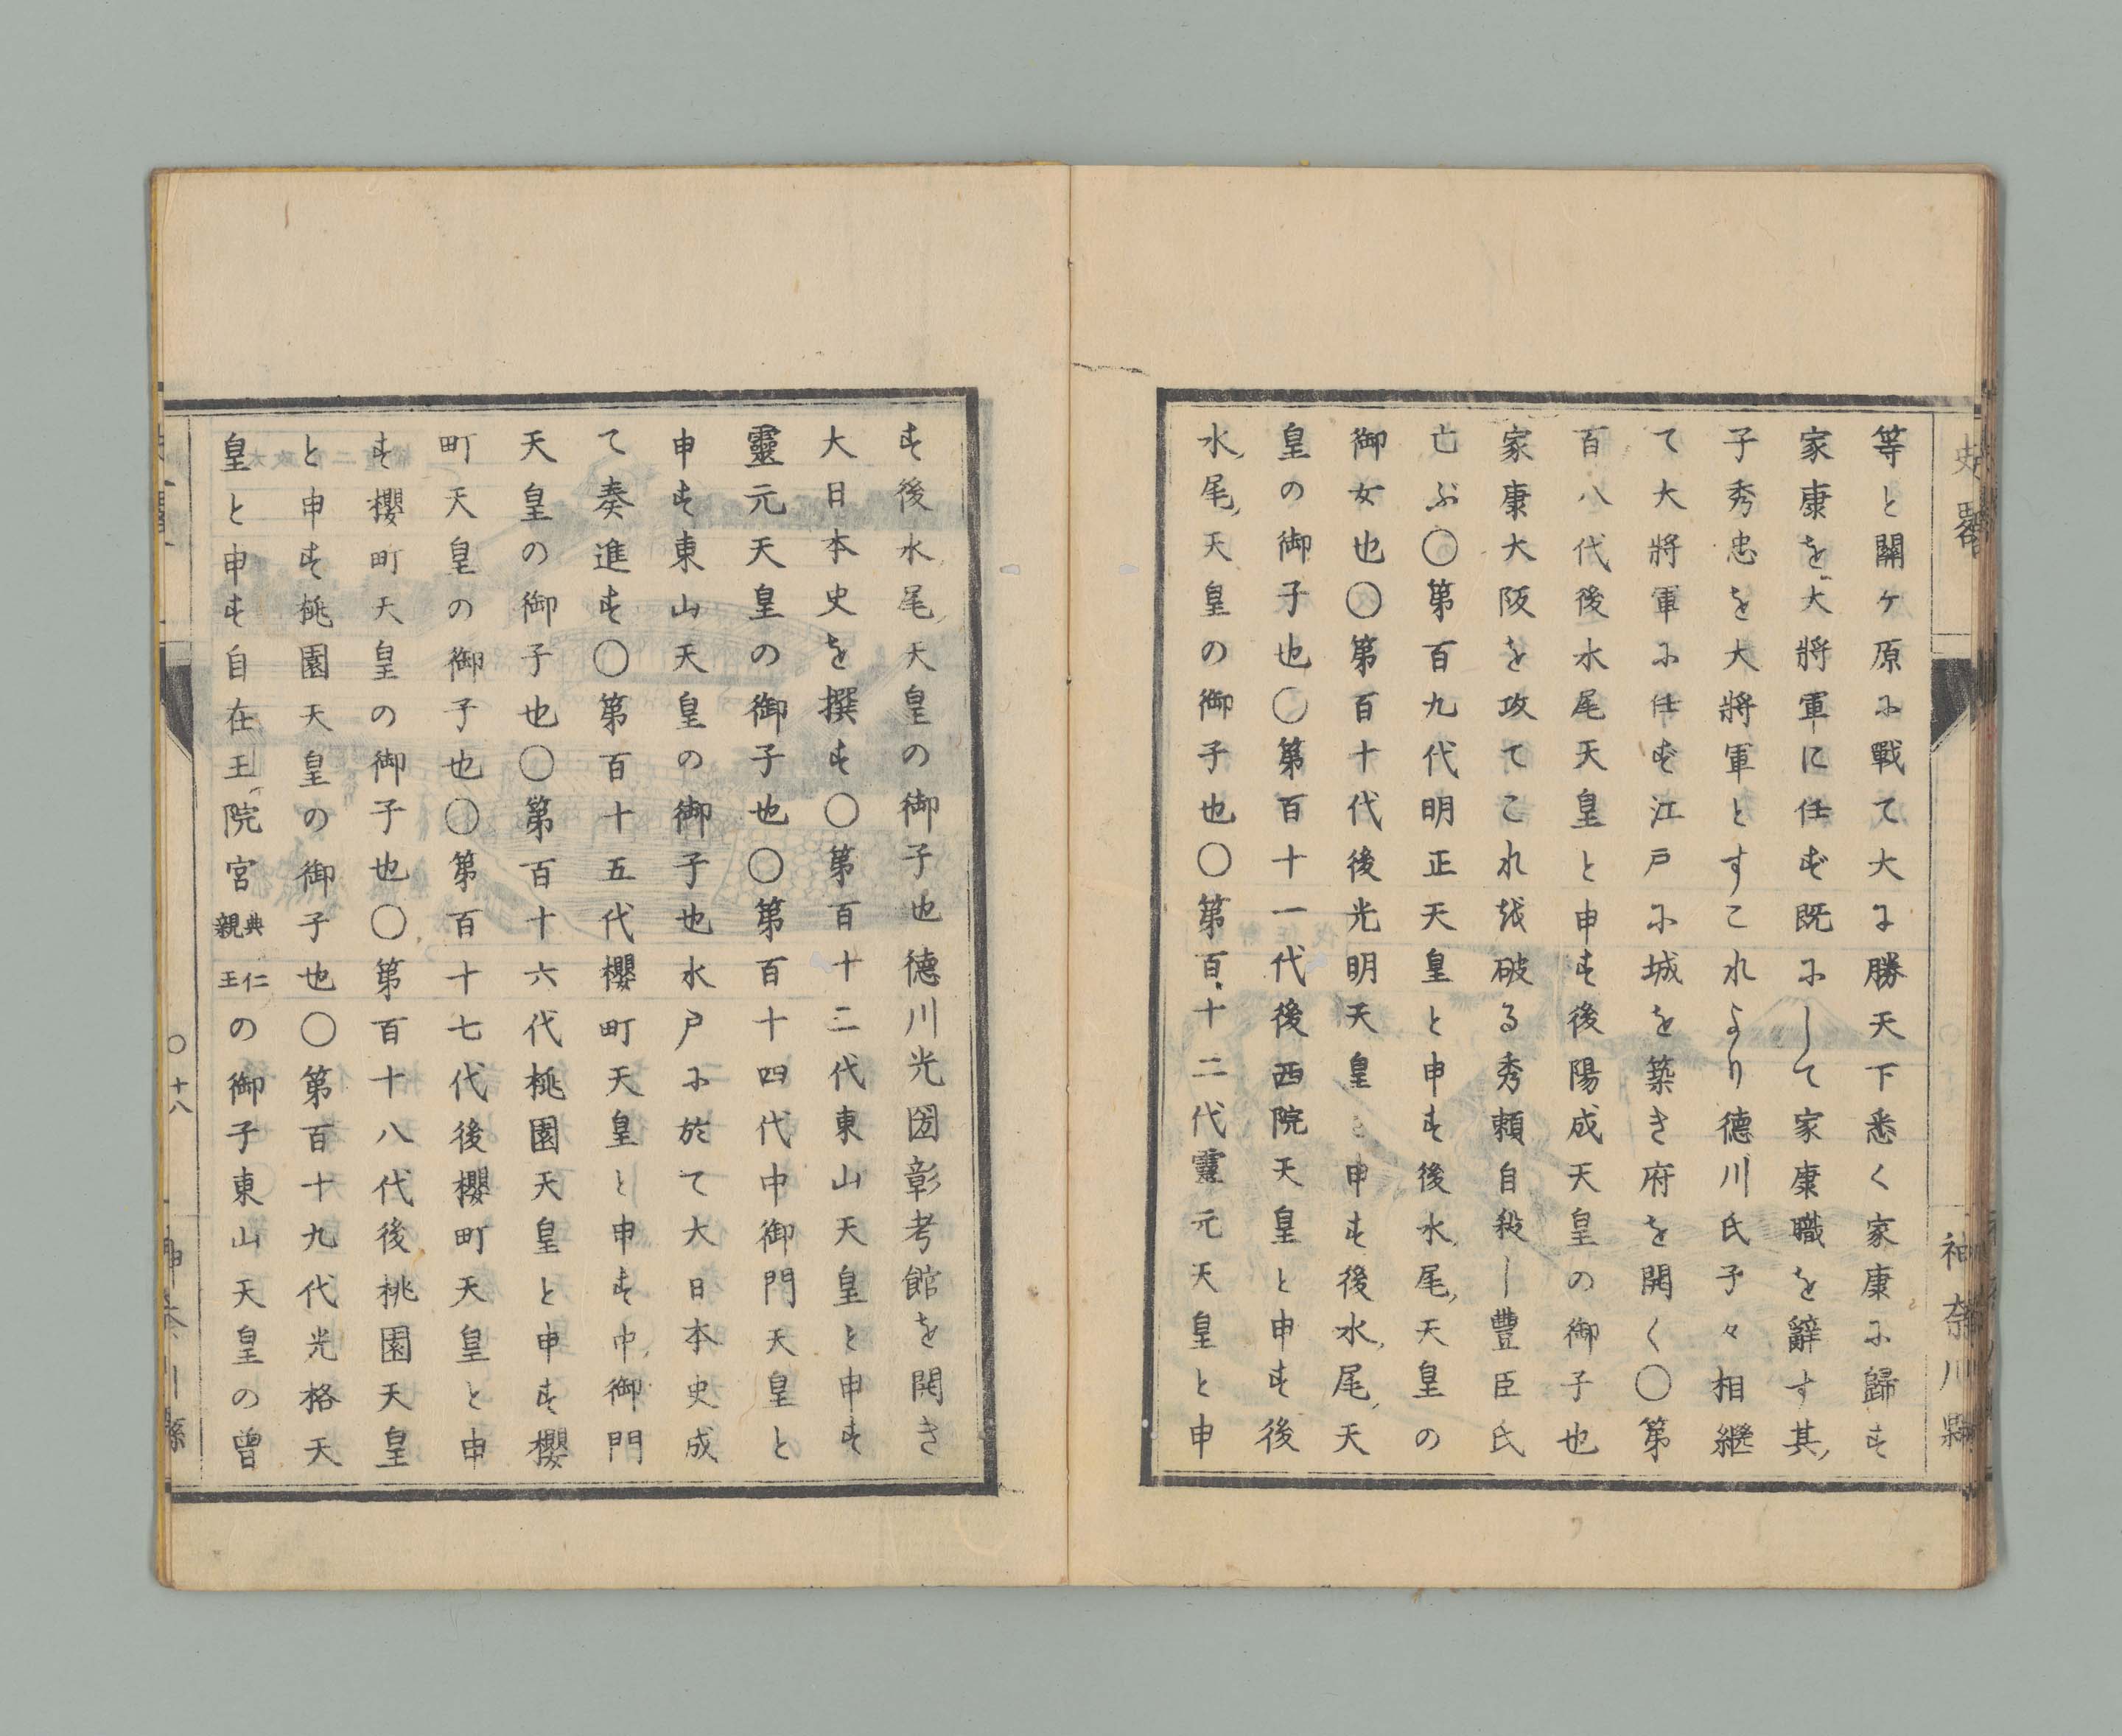 史略
神奈川縣
等と關ヶ原に戰て大に勝天下悉く家康に歸す
家康を大將軍に任ず既にして家康職を辭す其
子秀忠を大將軍とすこれより德川氏子々相継
て大將軍に任ず江戸に城を築き府を開く〇第
百八代後水尾天皇と申す後陽成天皇の御子也
家康大阪を攻てこれを破る秀頼自殺し豊臣氏
亡ぶ〇第百九代明正天皇と申す後水尾天皇の
御女也〇第百十代後光明天皇と申す後水尾天
皇の御子也〇第百十一代後西院天皇と申す後
水尾天皇の御子也〇第百十二代靈元天皇と申
す後水尾天皇の御子也德川光圀彰考館を開き
大日本史を撰す〇第百十二代東山天皇と申す
靈元天皇の御子也〇第百十四代中御門天皇と
申す東山天皇の御子也水戸に於て大日本史成
て奏進す〇第百十五代櫻町天皇と申す中御門
天皇の御子也〇第百十六代桃園天皇と申す櫻
町天皇の御子也〇第百十七代後櫻町天皇と申
す櫻町天皇の御子也〇第百十八代後桃園天皇
と申す桃園天皇の御子也〇第百十九代光格天
皇と申す自在王院宮典仁親王の御子東山天皇の曾
〇十八